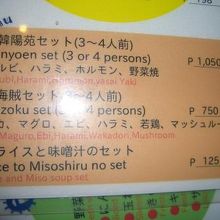 韓陽苑セット(3〜4人前)
nyoen set (3 or 4 persons) P 1,050
ルビ、ハラミ、ホルモン、野菜焼
ubi,Harami,Horumon,vasai Yaki
海賊セット(3〜4人前)
zoku set (3 or 4 persons) P 750
カ、マグロ、エビ、ハラミ、若鶏、マッシュルー
Maguro,Ebi,Harami,Wakadori,Mushroom
ライスと味噌汁のセット
ce to Misoshiru no set P 125
e and Miso soup set